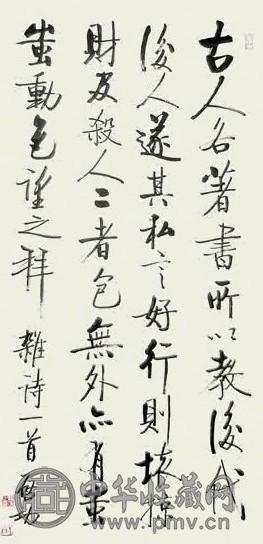 古人名著書所以教後我
後人遂其私言好行則接
財及殺人二者包無外亦有
蚩動色謹之拜 雜詩一首
中华收藏网
www.pmv.cn